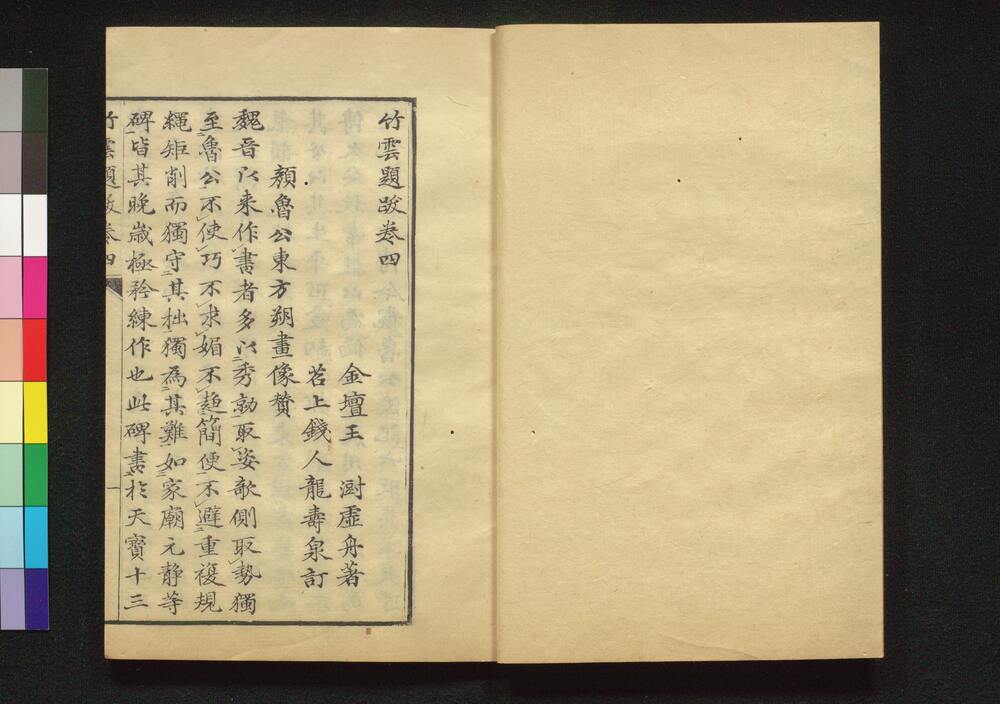 竹雲題跋卷四
金壇王澍虛舟著
苕上錢人龍壽泉訂
顏魯公東方朔畫像贊
魏晉以来作書者多以秀勁取姿欹側取勢獨
至魯公不使巧不求媚不趍簡便不避重複規
繩矩削而獨守其拙獨為其難如家廟元靜等
碑皆其晚歲極矜練作也此碑書於天寳十三
竹雲題跋卷四
一